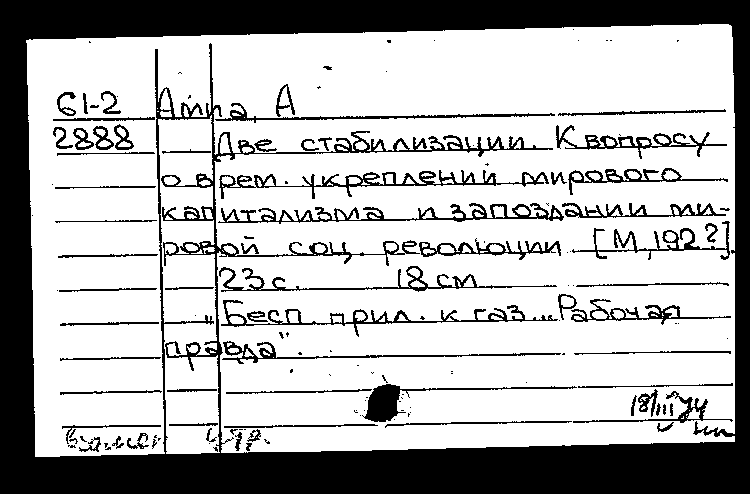 61-2 Атта, А
2888 Две стабилизации. К вопросу
о врем. укреплений мирового
капитализма и запоздании ми-
ровой соц. революции [М, 192?].
23 с. 18 см
„Бесп. прил. к газ. „Рабочая
правда".
18/III 74
Взамен утр.